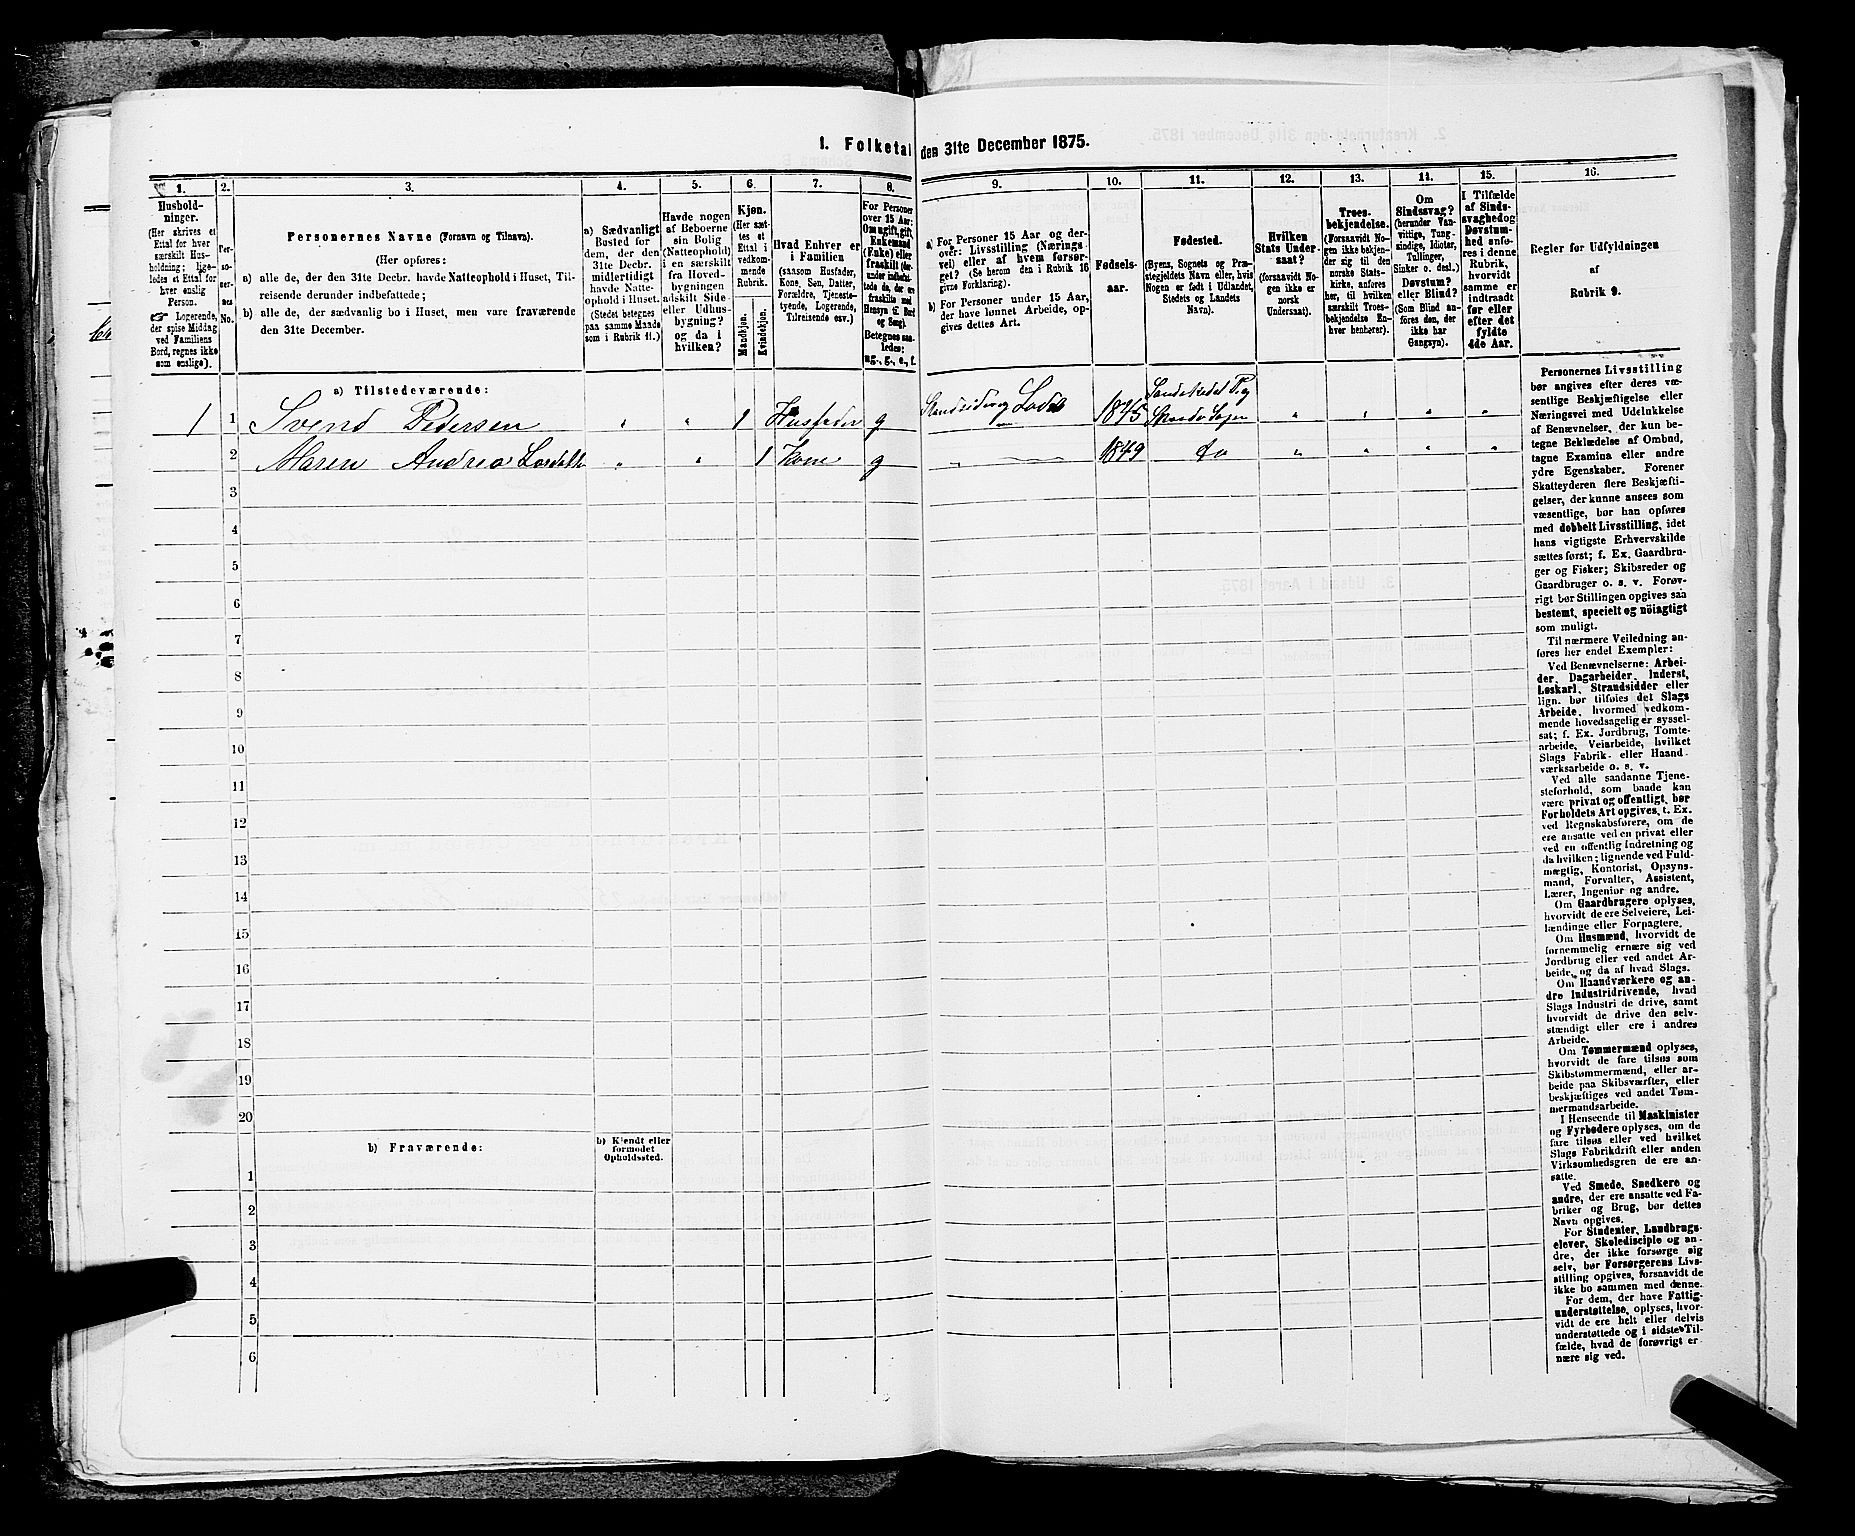 1. Folketal den 31te December 1875.
1.
2.
3.
4.
5.
6.
7.
8.
9.
10.
11.
12.
13.
14.
15.
16.
Hushold-
ninger.
(Her skrives et
Ettal for hver
særskilt Hus-
holdning; lige-
ledes et Ettal for
hver enslig
Person.
☞ Logerende,
der spise Middag
ved Familiens
Bord, regnes ikke
som enslige).
Per-
so-
ner-
nes
No.
Personernes Navne (Fornavn og Tilnavn).
(Her opføres:
a) alle de, der den 31te Decbr. havde Natteophold i Huset, Til-
reisende derunder indbefattede;
b) alle de, der sædvanlig bo i Huset, men vare fraværende
den 31te December.
a) Sædvanligt
Bosted for
dem, der den
31te Decbr.
midlertidigt
havde Natte-
ophold i Huset.
(Stedet betegnes
paa samme Maade
som i Rubrik 11.)
Havde nogen
af Beboerne
sin Bolig
(Natteophold)
i en særskilt
fra Hoved-
bygningen
adskilt Side-
eller Udhus-
bygning?
og da i
hvilken?
Kjøn.
(Her sæt-
tes et
Ettal i
vedkom-
mende
Rubrik.
Mandkjøn.
Kvindekjøn.
Hvad Enhver er
i Familien
(saasom Husfader,
Kone, Søn, Datter,
Forældre, Tjeneste-
tyende, Logerende,
Tilreisende osv.)
For Personer
over 15 Aar:
Om ugift, gift,
Enkemand
(Enke) eller
fraskilt (her-
under indbefat-
tede de, der ere
fraskilte med
Hensyn til Bord
og Seng).
Betegnes saa-
ledes:
ug., g., e., f.
a) For Personer 15 Aar og der-
over: Livsstilling (Nærings-
vei) eller af hvem forsør-
get? (Se herom den i Rubrik 16
givne Forklaring).
b) For Personer under 15 Aar,
der have lønnet Arbeide, op-
gives dettes Art.
Fødsels-
aar.
Fødested.
(Byens, Sognets og Præ-
stegjeldets Navn eller, hvis
Nogen er født i Udlandet,
Stedets og Landets
Navn).
Hvilken
Stats Under-
saat?
(forsaavidt No-
gen ikke er
norsk
Undersaat).
Troes-
bekjendelse.
(Forsaavidt No-
gen ikke bekjen-
der sig til den
norske Stats-
kirke, anføres
her, til hvilken
særskilt Troes-
bekjendelse En-
hver henhører).
Om
Sindssvag?
(herunder Van-
vittige, Tung-
sindige, Idioter,
Tullinger,
Sinker o. desl.)
Døvstum?
eller Blind?
(Som Blind an-
føres den, der
ikke har
Gangsyn).
I Tilfælde
af Sinds-
svaghed og
Døvstum-
hed anfø-
res i denne
Rubrik,
hvorvidt
samme er
indtraadt
før eller
efter det
fyldte
4de Aar.
Regler for Udfyldningen
af
Rubrik 9.
a) Tilstedeværende:
1 1 Svend Pedersen " " 1 Husfader g 1845 " " " "
2 Maren Andrea " " 1 Kone g " " 1849 do " " " "
3
4
5
6
7
8
9
10
11
12
13
14
15
16
17
18
19
20
b) Fraværende:
b) Kjendt eller
formodet
Opholdssted.
1
2
3
4
5
6
Personernes Livsstilling
bør angives efter deres væ-
sentlige Beskjæftigelse eller
Næringsvei med Udelukkelse
af Benævnelser, der kun be-
tegne Beklædelse af Ombud,
tagne Examina eller andre
ydre Egenskaber. Forener
Skatteyderen flere Beskjæfti-
gelser, der kunne ansees som
væsentlige, bør han opføres
med dobbelt Livsstilling, idet
hans vigtigste Erhvervskilde
sættes først; f. Ex. Gaardbru-
ger og Fisker; Skibsreder og
Gaardbruger o. s. v. Forøv-
rigt bør Stillingen opgives saa
bestemt, specielt og nöiagtigt
som muligt.
Til nærmere Veiledning an-
føres her endel Exempler:
Ved Benævnelserne: Arbei-
der, Dagarbeider, Inderst,
Løskarl, Strandsidder eller
lign. bør tilføies det Slags
Arbeide, hvormed vedkom-
mende hovedsagelig er syssel-
sat; f. Ex. Jordbrug, Tomte-
arbeide, Veiarbeide, hvilket
Slags Fabrik- eller Haand-
værksarbeide o. s. v.
Ved alle saadanne Tjene-
steforhold, som baade kan
være privat og offentligt, bør
Forholdets Art opgives, t. Ex.
ved Regnskabsførere, om de
ere ansatte ved en privat eller
ved en offentlig Indretning og
da hvilken; lignende ved Fuld-
mægtig, Kontorist, Opsyns-
mand, Forvalter, Assistent,
Lærer, Ingeniør og andre.
Om Gaardbrugere oplyses,
hvorvidt de ere Selveiere, Lei-
lændinge eller Forpagtere.
Om Husmænd, hvorvidt de
fornemmelig ernære sig ved
Jordbrug eller ved andet Ar-
beide, og da af hvad Slags.
Om Haandværkere og an-
dre Industridrivende, hvad
Slags Industri de drive, samt
hvorvidt de drive den selv-
stændigt eller ere i andres
Arbeide.
Om Tømmermænd oplyses,
hvorvidt de fare tilsøs som
Skibstømmermænd, eller ar-
beide paa Skibsværfter, eller
beskjæftiges ved andet Tøm-
mermandsarbeide.
I Henseende til Maskinister
og Fyrbødere oplyses, om de
fare tilsøs eller ved hvilket
Slags Fabrikdrift eller anden
Virksomhedsgren de ere an-
satte.
Ved Smede, Snedkere og
andre, der ere ansatte ved Fa-
briker og Brug, bør dettes
Navn opgives.
For Studenter, Landbrugs-
elever, Skoledisciple og an-
dre, der ikke forsørge sig
selv, bør Forsørgerens Livs-
stilling opgives, forsaavidt de
ikke bo sammen med denne.
For dem, der have Fattig-
understøttelse, oplyses, hvor-
vidt de ere helt eller delvis
understøttede og i sidste Til-
fælde, hvad de forøvrigt er-
nære sig ved.